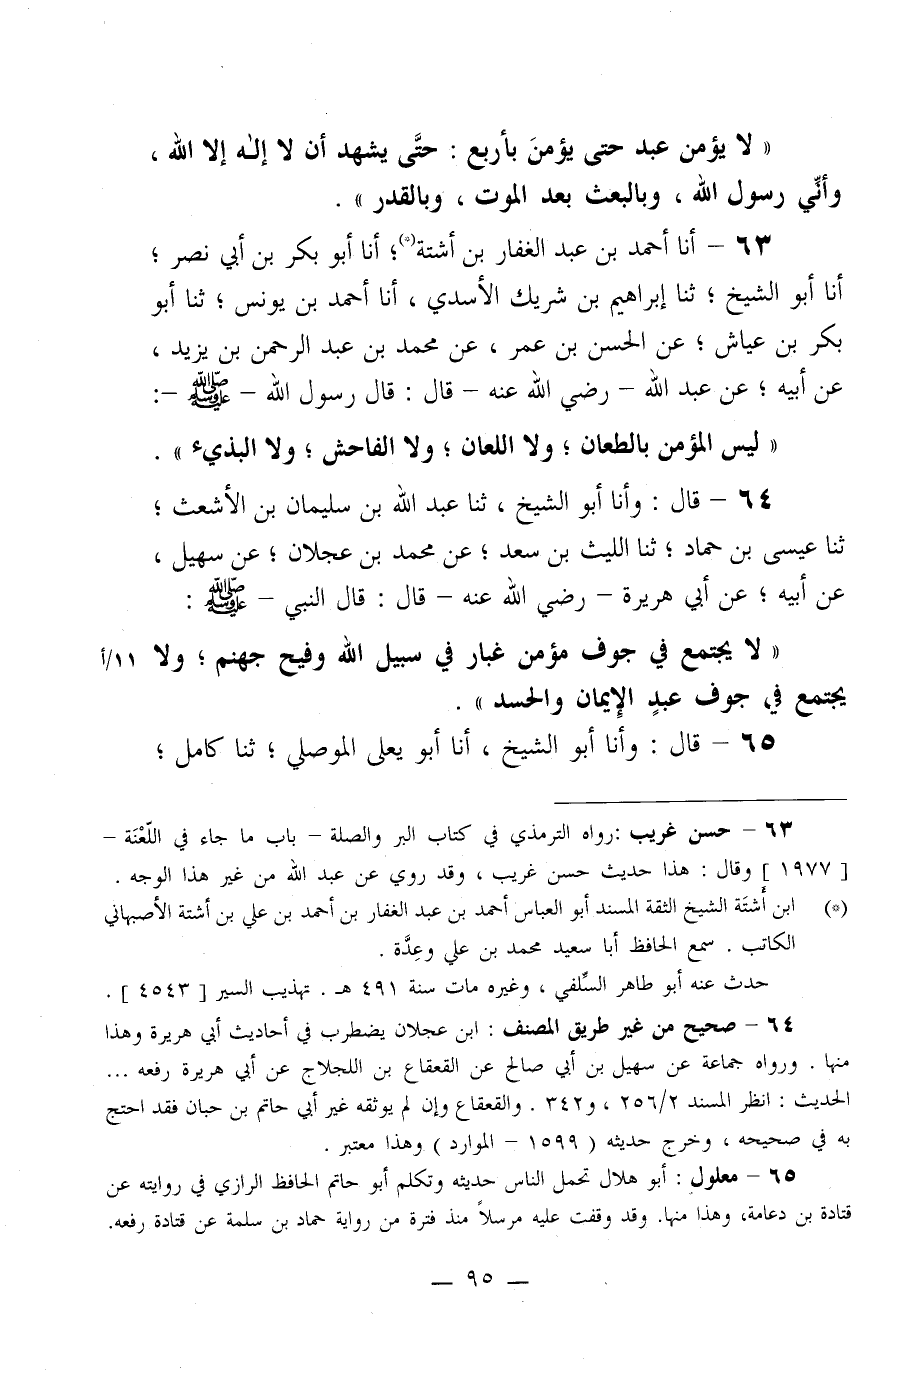 « لا يؤمن عبد حتى يؤمنَ بأربع : حتَّى يشهد أن لا إلٰه إلا الله ،
وأنِّي رسول الله ، وبالبعث بعد الموت ، وبالقدر » .
٦٣ – أنا أحمد بن عبد الغفار بن أشتة(*)؛ أنا أبو بكر بن أبي نصر ؛
أنا أبو الشيخ ؛ ثنا إبراهيم بن شريك الأسدي ، أنا أحمد بن يونس ؛ ثنا أبو
بكر بن عياش ؛ عن الحسن بن عمر ، عن محمد بن عبد الرحمن بن يزيد ،
عن أبيه ؛ عن عبد الله – رضي الله عنه – قال : قال رسول الله – ﷺ –:
« ليس المؤمن بالطعان ؛ ولا اللعان ؛ ولا الفاحش ؛ ولا البذيء » .
٦٤ – قال : وأنا أبو الشيخ ، ثنا عبد الله بن سليمان بن الأشعث ؛
ثنا عيسى بن حماد ؛ ثنا الليث بن سعد ؛ عن محمد بن عجلان ؛ عن سهيل ،
عن أبيه ؛ عن أبي هريرة – رضي الله عنه – قال : قال النبي – ﷺ :
« لا يجتمع في جوف مؤمن غبار في سبيل الله وفيح جهنم ؛ ولا ١١/أ
يجتمع في جوف عبدٍ الإِيمان والحسد » .
٦٥ – قال : وأنا أبو الشيخ ، أنا أبو يعلى الموصلي ؛ ثنا كامل ؛
٦٣ – حسن غريب :رواه الترمذي في كتاب البر والصلة – باب ما جاء في اللَّعْنَة –
[ ١٩٧٧ ] وقال : هذا حديث حسن غريب ، وقد روي عن عبد الله من غير هذا الوجه .
(*) ابن أُشتَة الشيخ الثقة المسند أبو العباس أحمد بن عبد الغفار بن أحمد بن علي بن أشتة الأصبهاني
الكاتب . سمع الحافظ أبا سعيد محمد بن علي وعِدَّة .
حدث عنه أبو طاهر السِّلفي ، وغيره مات سنة ٤٩١ هـ . تهذيب السير [ ٤٥٤٣ ] .
٦٤ – صحيح من غير طريق المصنف : ابن عجلان يضطرب في أحاديث أبي هريرة وهذا
منها . ورواه جماعة عن سهيل بن أبي صالح عن القعقاع بن اللجلاج عن أبي هريرة رفعه ...
الحديث : انظر المسند ٢٥٦/٢ ، و٣٤٢ . والقعقاع وإن لم يوثقه غير أبي حاتم بن حبان فقد احتج
به في صحيحه ، وخرج حديثه ( ١٥٩٩ – الموارد ) وهذا معتبر .
٦٥ – معلول : أبو هلال تحمل الناس حديثه وتكلم أبو حاتم الحافظ الرازي في روايته عن
قتادة بن دعامة، وهذا منها. وقد وقفت عليه مرسلاً منذ فترة من رواية حماد بن سلمة عن قتادة رفعه.
– ٩٥ –